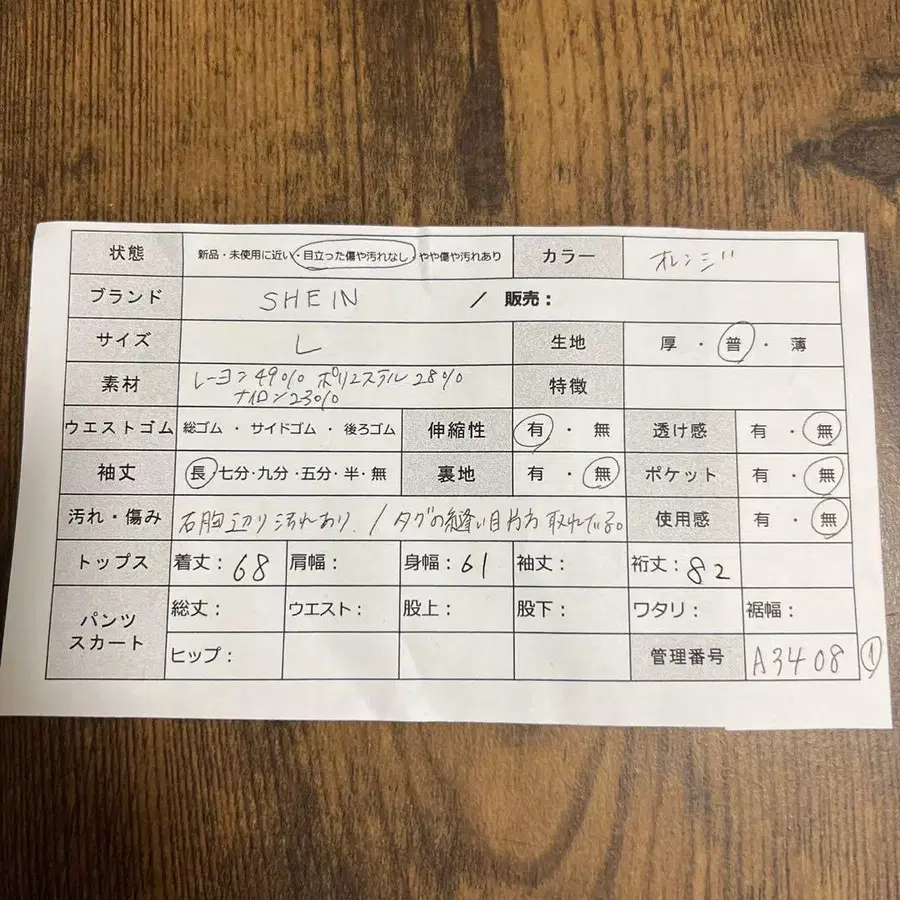 状態 新品・未使用に近い・目立った傷や汚れなし・やや傷や汚れあり カラー オレンジ
ブランド SHEIN / 販売：
サイズ L 生地 厚・普・薄
素材 レーヨン49% ポリエステル28% 特徴
ナイロン23%
ウエストゴム 総ゴム・サイドゴム・後ろゴム 伸縮性 有・無 透け感 有・無
袖丈 長・七分・九分・五分・半・無 裏地 有・無 ポケット 有・無
汚れ・傷み 右胸辺り汚れあり / タグの縫い目片方取れてる。 使用感 有・無
トップス 着丈：68 肩幅： 身幅：61 袖丈： 裄丈：82
パンツ 総丈： ウエスト： 股上： 股下： ワタリ： 裾幅：
スカート ヒップ： 管理番号 A3408 ①